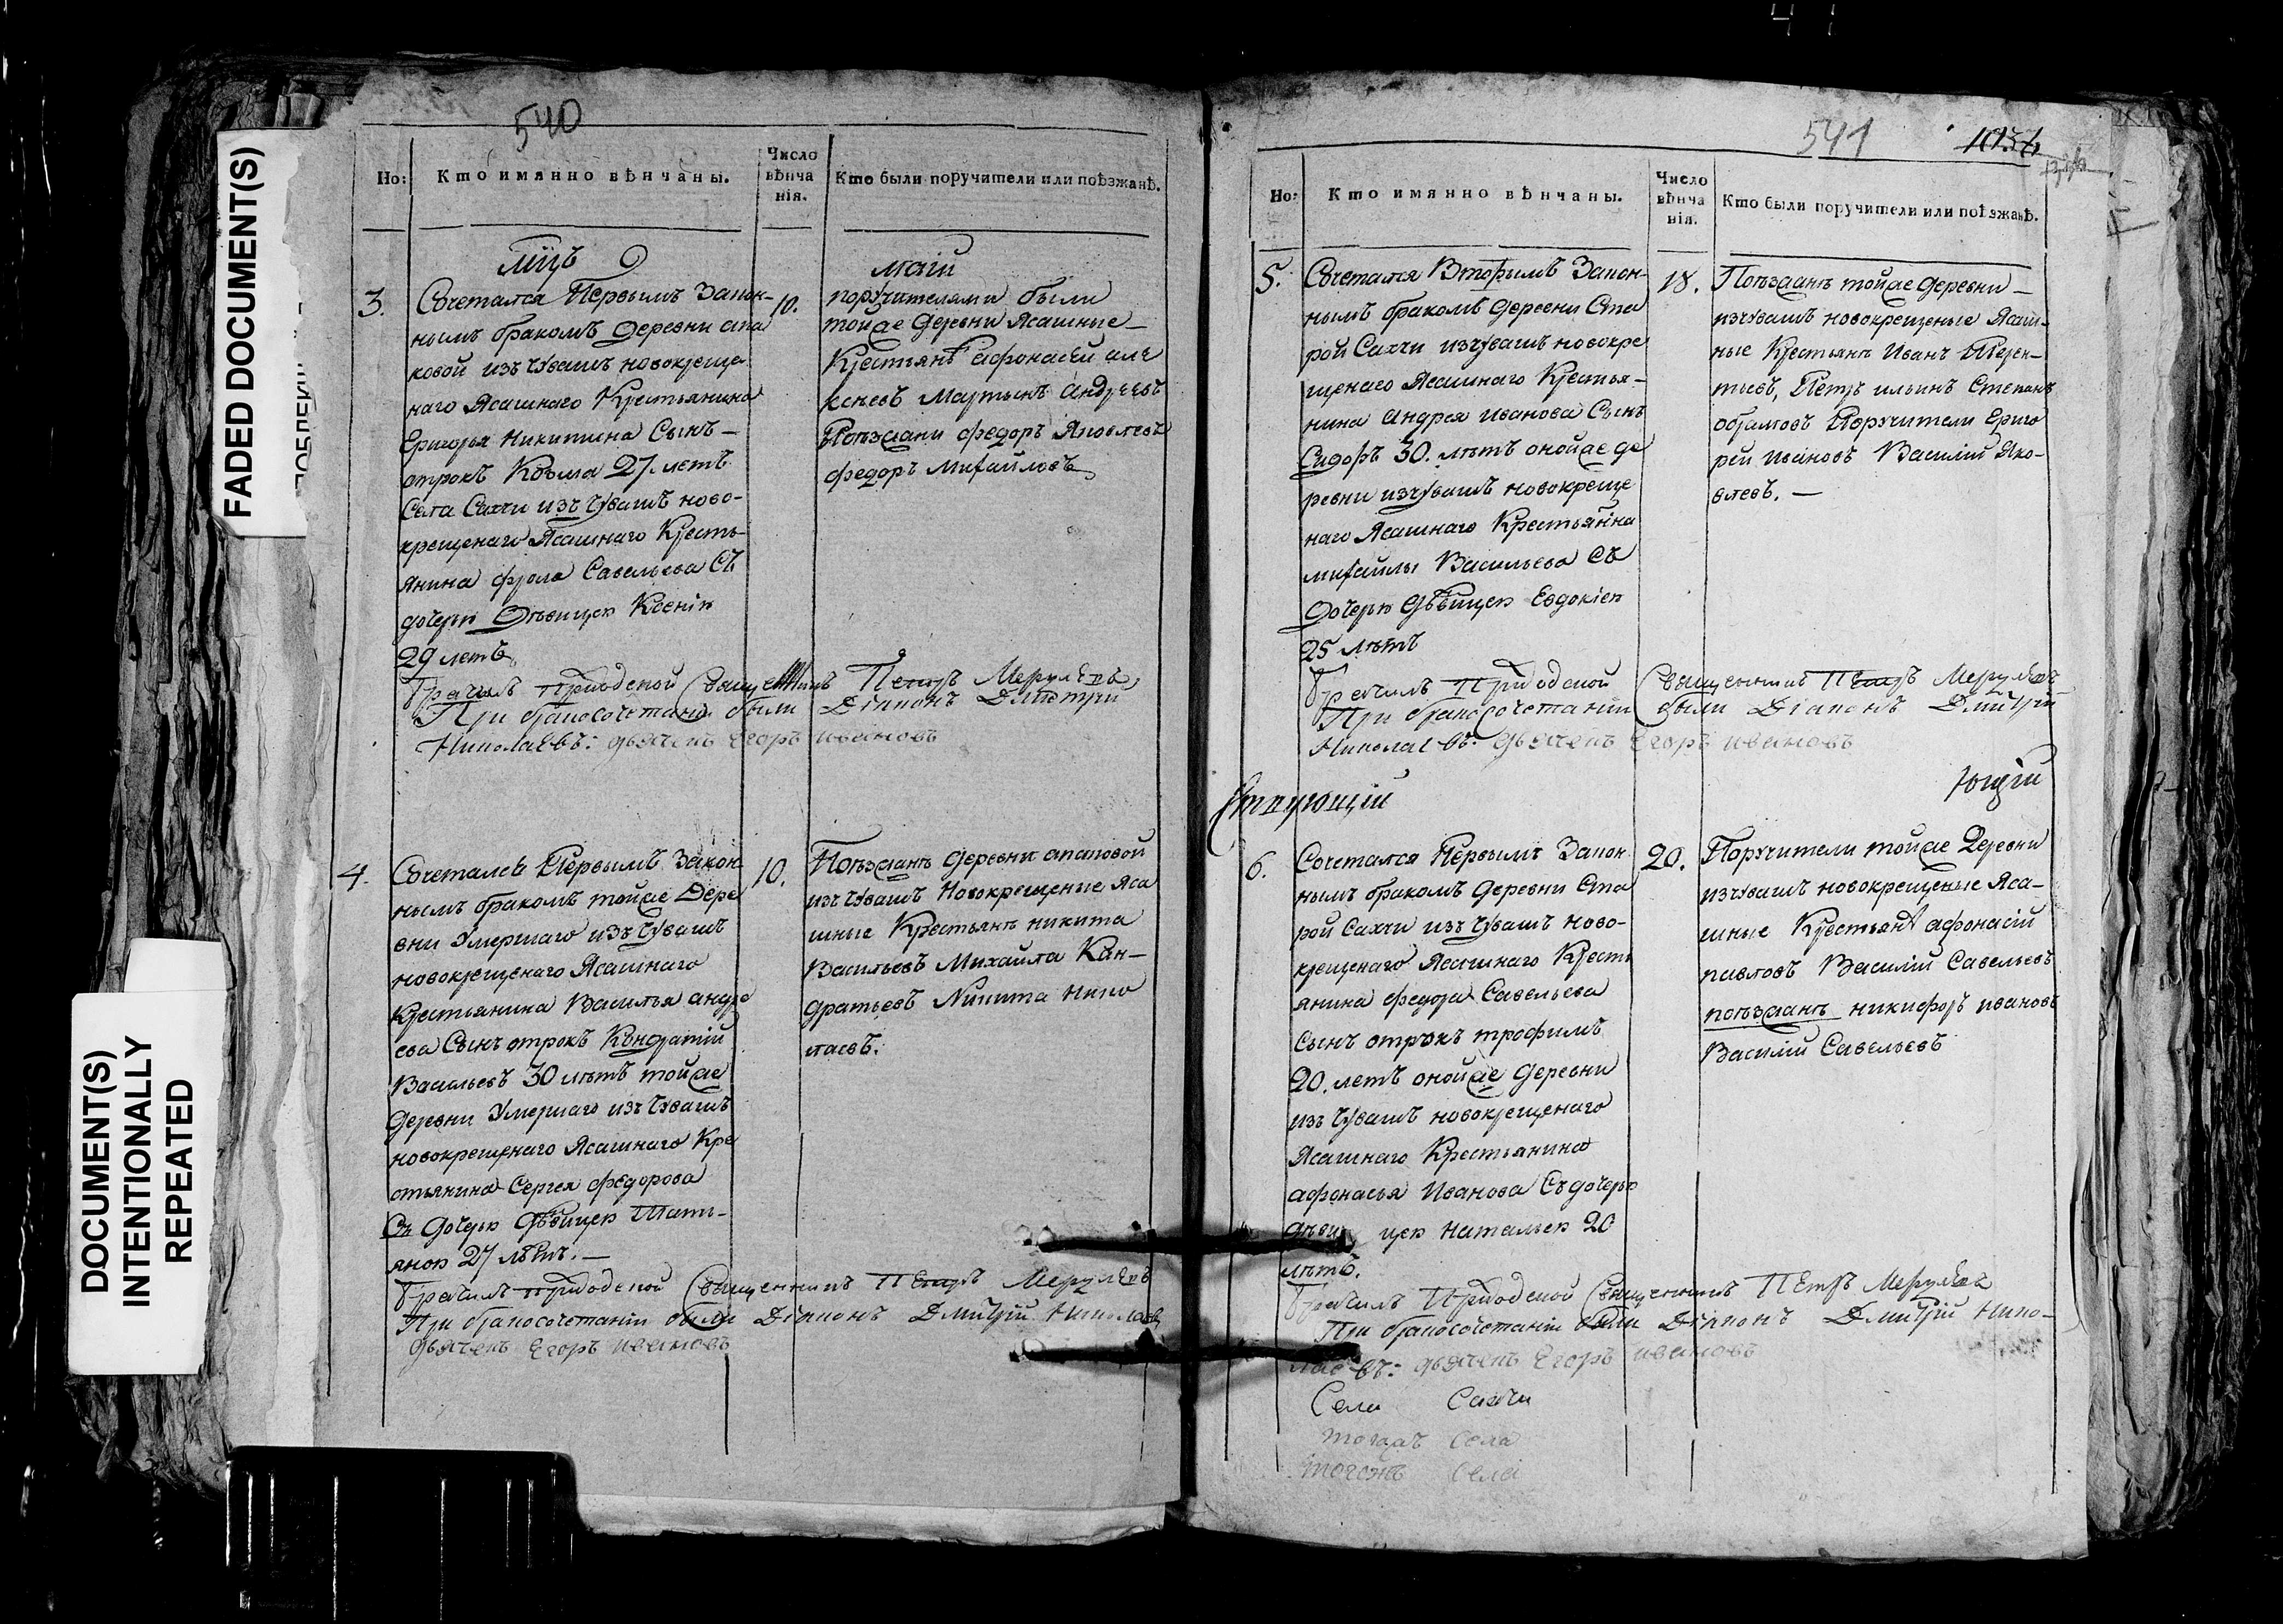 FADED DOCUMENT(S)
DOCUMENT(S)
INTENTIONALLY
REPEATED
540
Но:
Кто имянно вѣнчаны.
Число
вѣнча
нія.
Кто были поручители или поѣзжанѣ.
мцъ
маій
3.
Сочетался Первымъ Закон-
нымъ бракомъ деревни апа
ковой изъ чувашъ новокреще
наго Ясашнаго Крестьянина
Григорья Никитина Сынъ —
отрокъ Козма 27. летъ
Села Сахчи изъ чувашъ ново-
крещенаго Ясашнаго Кресть-
янина фрола Савельева Съ
дочерью Дѣвицею Ксеніею
29 летъ
10.
поручителями были
тойже деревни Ясашные —
Крестьянѣ афонасей але
ксеевъ Мартынъ Андреевъ
Поѣзжани федоръ Яковлевъ
федоръ Михайловъ
Бракъ Приходской Священникъ Петръ
При бракосочетаніи были Діаконъ Дмитрій
Николаевъ: дьячекъ Егоръ ивановъ
4.
Сочетался Первымъ Закон
нымъ бракомъ тойже Дере
вни Умершаго изъ чувашъ
новокрещенаго Ясашнаго
Крестьянина Василья андре
ева Сынъ отрокъ Кондратій
Васильевъ 30 лѣтъ тойже
Деревни Умершаго изъ чувашъ
новокрещенаго Ясашнаго Кре
стьянина Сергея федорова
Съ дочерью дѣвицею Тать-
яною 27 лѣтъ. —
10.
Поѣзжанѣ деревни апаковой
изъ чувашъ Новокрещеные Яса
шные Крестьянѣ никита
Васильевъ Михайла Кан-
дратьевъ Никита Нико
лаевъ.
Приходской Священникъ Петръ
При бракосочетаніи были Діаконъ Дмитрій Николаевъ
дьячекъ Егоръ ивановъ
541
Но:
Кто имянно вѣнчаны.
Число
вѣнча
нія.
Кто были поручители или поѣзжанѣ.
5.
Сочетался Вторымъ Закон-
нымъ бракомъ деревни Ста
рой Сахчи изъ чувашъ новокре
щенаго Ясашнаго Крестья-
нина андрея Иванова Сынъ
Сидоръ 30. лѣтъ онойже де
ревни изъ чувашъ новокреще
наго Ясашнаго Крестьянина
михайлы Васильева Съ
Дочерью дѣвицею Евдокіею
25 лѣтъ
18.
Поѣзжанѣ тойже деревни —
изъ чувашъ новокрещеные Ясаш-
ные Крестьянѣ Иванъ Терен-
тьевъ, Петръ ильинъ Степанъ
абрамовъ Поручители Григо
рей Ивановъ Василій Яко-
влевъ. —
Приходской Священникъ Петръ
При бракосочетаніи были Діаконъ Дмитрій
Николаевъ: дьячекъ Егоръ ивановъ
6.
Сочетался Первымъ Закон
нымъ бракомъ деревни Ста
рой Сахчи изъ чувашъ ново-
крещенаго Ясашнаго Кресть
янина федора Савельева
Сынъ отрокъ трофимъ
20. летъ онойже деревни
изъ чувашъ новокрещенаго
Ясашнаго Крестьянина
афонасья Иванова Съ дочерью
дѣвицею натальею 20
лѣтъ.
20.
Поручители тойже Деревни
изъ чувашъ новокрещеные Яса-
шные Крестьянѣ афонасій
павловъ Василій Савельевъ
поѣзжанѣ никифоръ ивановъ
Василій Савельевъ
Приходской Священникъ Петръ
При бракосочетаніи были Діаконъ Дмитрій Нико-
лаевъ: дьячекъ Егоръ ивановъ
Села Сахчи
тогожъ села
тогожъ села